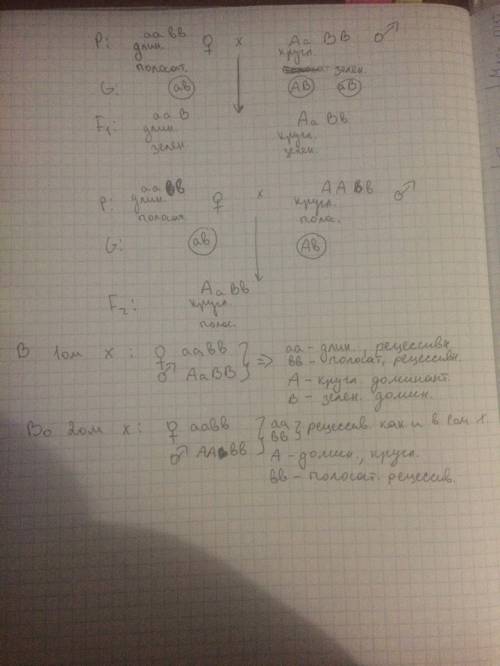 P: аа вв ♀ х Аа ВВ ♂
длин. кругл.
полосат. зелен.
G: ав АВ аВ
F1: аа В Аа Вв
длин. кругл.
зелен. зелен.
P: аа вв ♀ х АА вв ♂
длин. кругл.
полосат. полос.
G: ав Ав
F2: Аа Вв
кругл.
полос.
В 1ом х : ♀ аавв } => аа - длин., рецессивн.
♂ АаВВ вв - полосат, рецессивн.
А - кругл. доминант.
В - зелен. домин.
Во 2ом х : ♀ аавв } аа } рецессив. как и в 1ом х.
♂ ААвв вв
А - домин., кругл.
вв - полосат. рецессив.